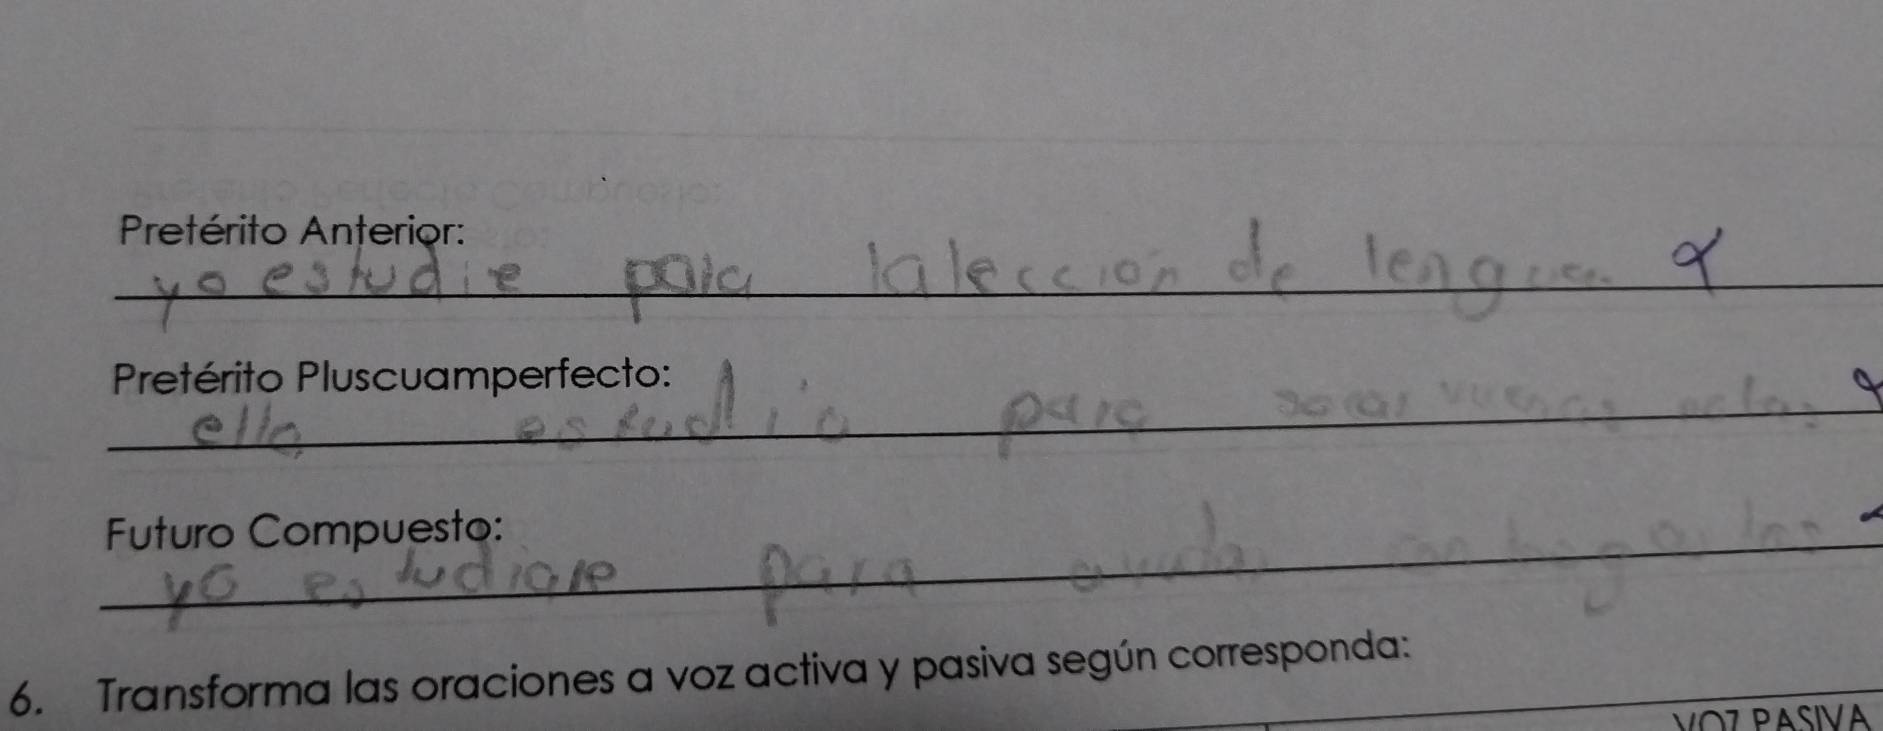 Pretérito Anterior:
yo estudie para la leccion de lengua
Pretérito Pluscuamperfecto:
ella estudio para sacar vuenas notas
Futuro Compuesto:
yo estudiare para
6. Transforma las oraciones a voz activa y pasiva según corresponda:
VOZ PASIVA